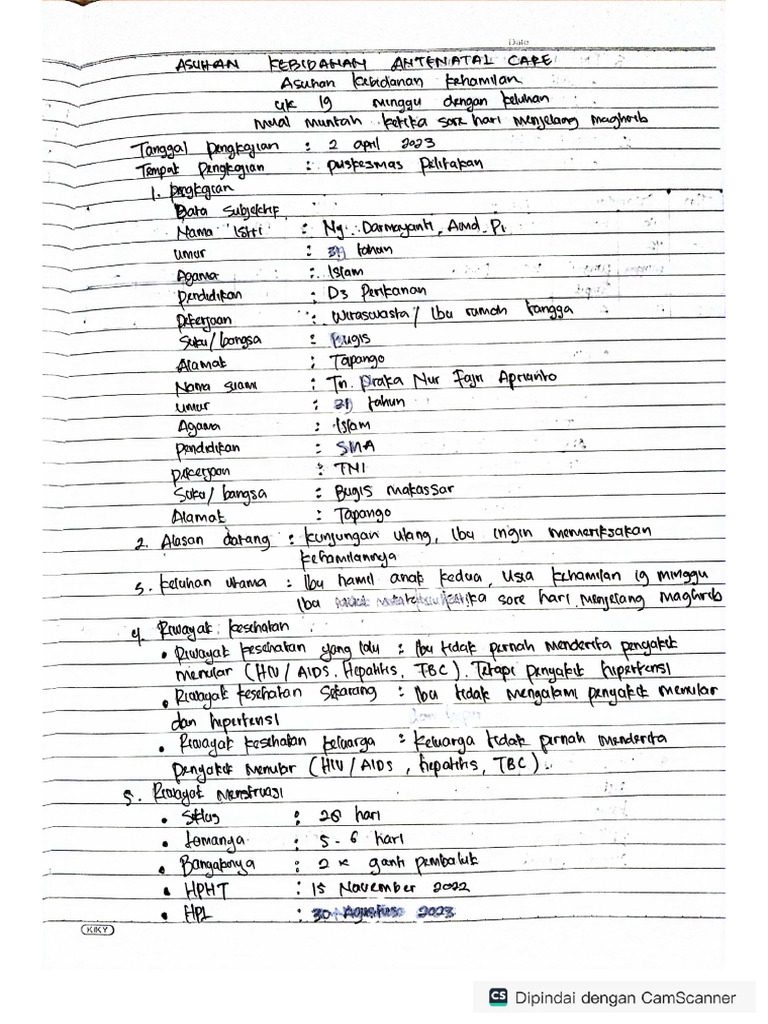 Date
ASUHAN KEBIDANAN ANTENATAL CARE
Asuhan Kebidanan Kehamilan
uk 19 minggu dengan keluhan
mual muntah ketika sore hari menjelang maghrib
Tanggal pengkajian : 2 april 2023
Tempat Pengkajian : puskesmas pelitakan
1. pengkajian
Data Subjektif
Nama istri : Ny. Darmayanti, Amd. Pi
umur : tahun
Agama : Islam
pendidikan : D3 Perikanan
pekerjaan : wiraswasta / Ibu rumah tangga
Suku / bangsa : Bugis
Alamat : Tapango
Nama suami : Tn. Praka Nur Fajri Aprianto
umur : tahun
Agama : Islam
pendidikan : SMA
pekerjaan : TNI
Suku / bangsa : Bugis makassar
Alamat : Tapango
2. Alasan datang : kunjungan ulang, Ibu ingin memeriksakan
kehamilannya
3. keluhan utama : Ibu hamil anak kedua, usia kehamilan 19 minggu
Ibu ketika sore hari menjelang maghrib
4. Riwayat kesehatan
• Riwayat kesehatan yang lalu : Ibu tidak pernah menderita penyakit
menular (HIV / AIDS. Hepatitis, TBC). Tetapi penyakit hipertensi
• Riwayat kesehatan Sekarang : Ibu tidak mengalami penyakit menular
dan hipertensi
• Riwayat kesehatan keluarga : keluarga tidak pernah menderita
penyakit menular (HIV / AIDS, hepatitis, TBC).
5. Riwayat menstruasi
• Siklus : 28 hari
• Lamanya : 5-6 hari
• Banyaknya : 2x ganti pembalut
• HPHT : 15 November 2022
• HPL : 30 Agustus 2023
KIKY
CS Dipindai dengan CamScanner